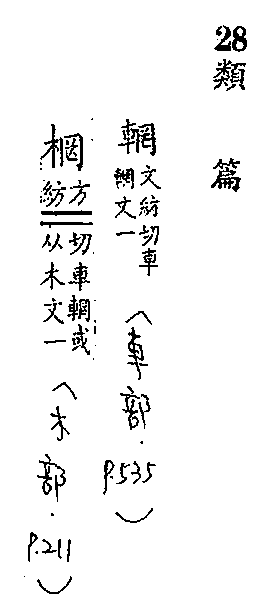 28 類篇
輞 文紡切車輞文一 (車部·P.535)
棢 方紡切車輞或从木文一 (木部·P.211)